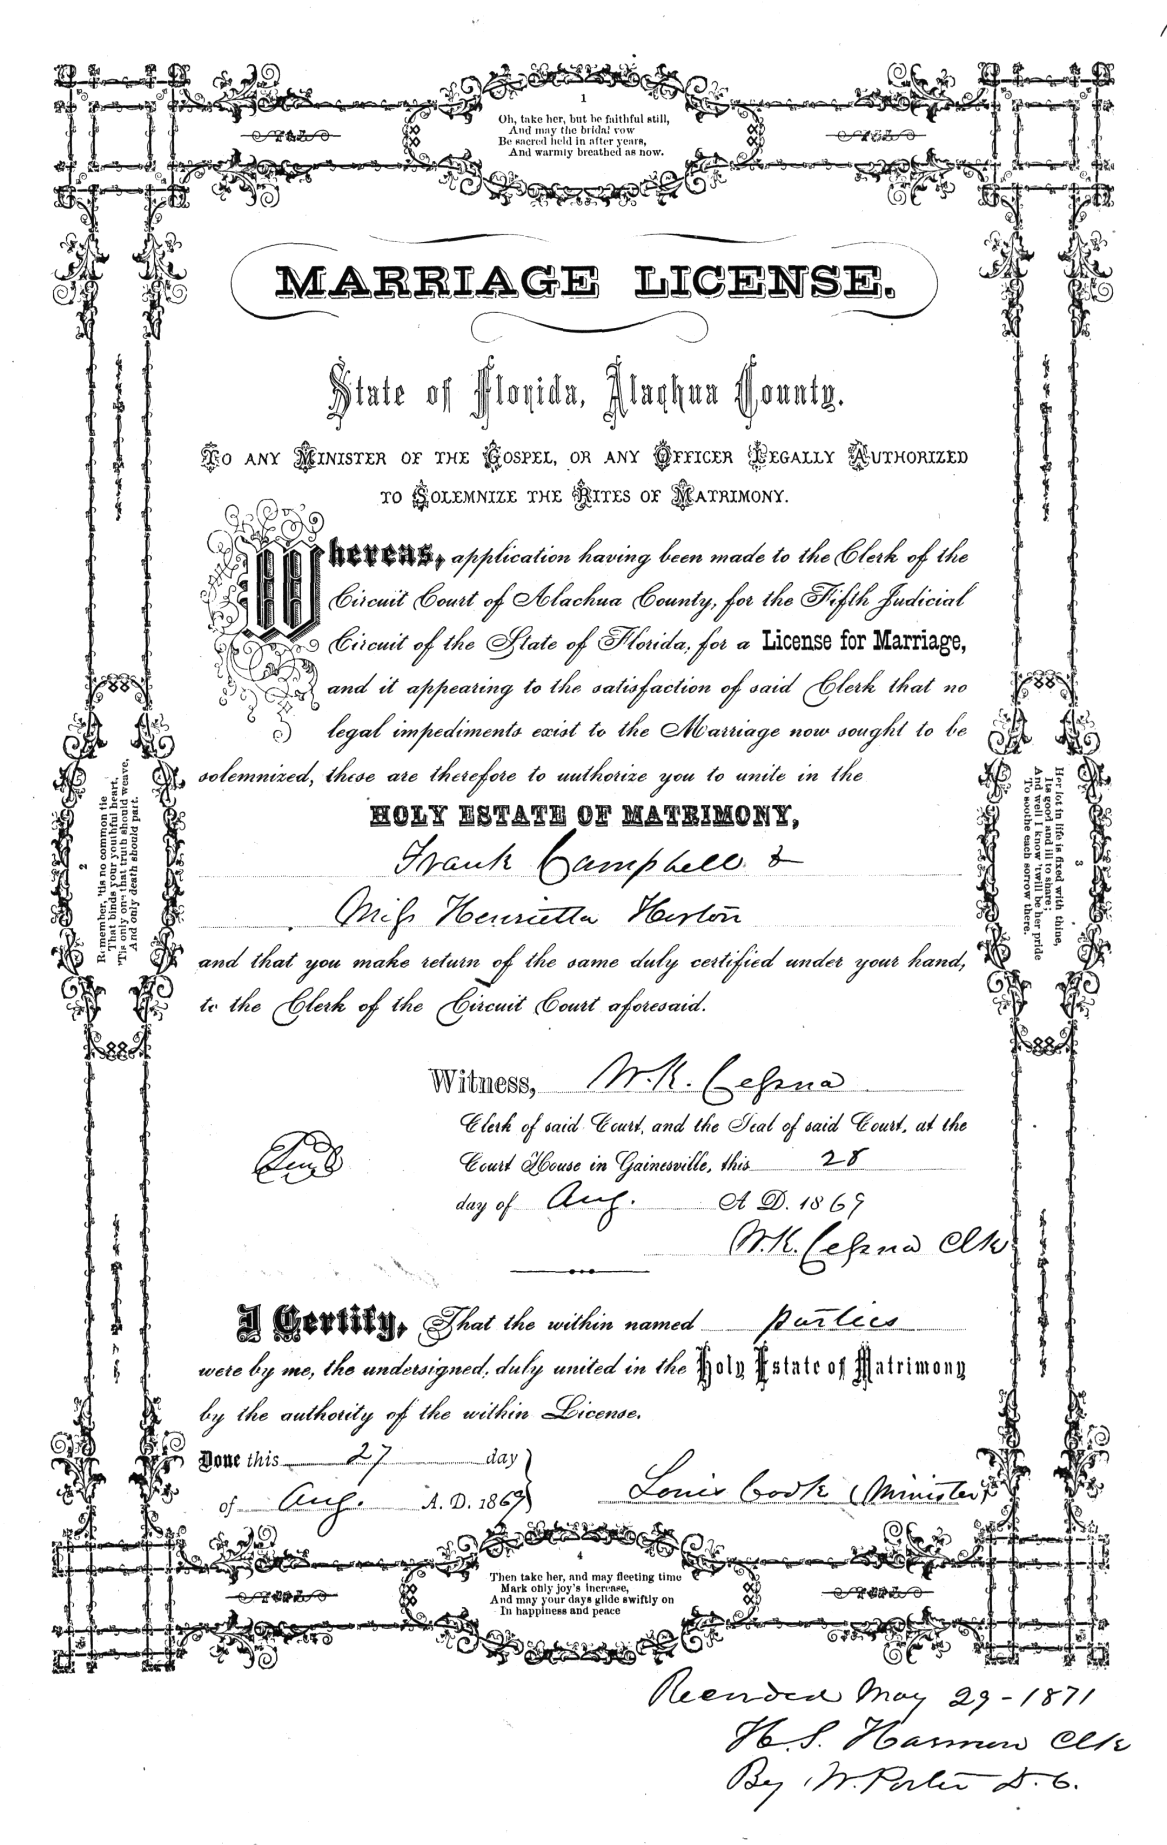 1
Oh, take her, but be faithful still,
And may the bridal vow
Be sacred held in after years,
And warmly breathed as now.
MARRIAGE LICENSE.
State of Florida, Alachua County.
TO ANY MINISTER OF THE GOSPEL, OR ANY OFFICER LEGALLY AUTHORIZED
TO SOLEMNIZE THE RITES OF MATRIMONY.
Whereas, application having been made to the Clerk of the
Circuit Court of Alachua County, for the Fifth Judicial
Circuit of the State of Florida, for a License for Marriage,
and it appearing to the satisfaction of said Clerk that no
legal impediments exist to the Marriage now sought to be
solemnized, these are therefore to authorize you to unite in the
HOLY ESTATE OF MATRIMONY,
Frank Campbell &
Miss Henrietta Heston
and that you make return of the same duly certified under your hand,
to the Clerk of the Circuit Court aforesaid.
Witness, W. K. Cessna
Clerk of said Court, and the Seal of said Court, at the
Court House in Gainesville, this 28
day of Aug. A. D. 1869
W. K. Cessna Clk
I Certify, That the within named parties
were by me, the undersigned, duly united in the Holy Estate of Matrimony
by the authority of the within License.
Done this 27 day
of Aug. A. D. 1869
Louis Cook (Minister)
2
Remember, 'tis no common tie
That binds your youthful heart,
'Tis only one that truth should weave,
And only death should part.
3
Her lot in life is fixed with thine,
Its good and ill to share;
And well I know 'twill be her pride
To soothe each sorrow there.
4
Then take her, and may fleeting time
Mark only joy's increase,
And may your days glide swiftly on
In happiness and peace
Recorded May 29-1871
H. S. Harmon Clk
By W. Porter D. C.